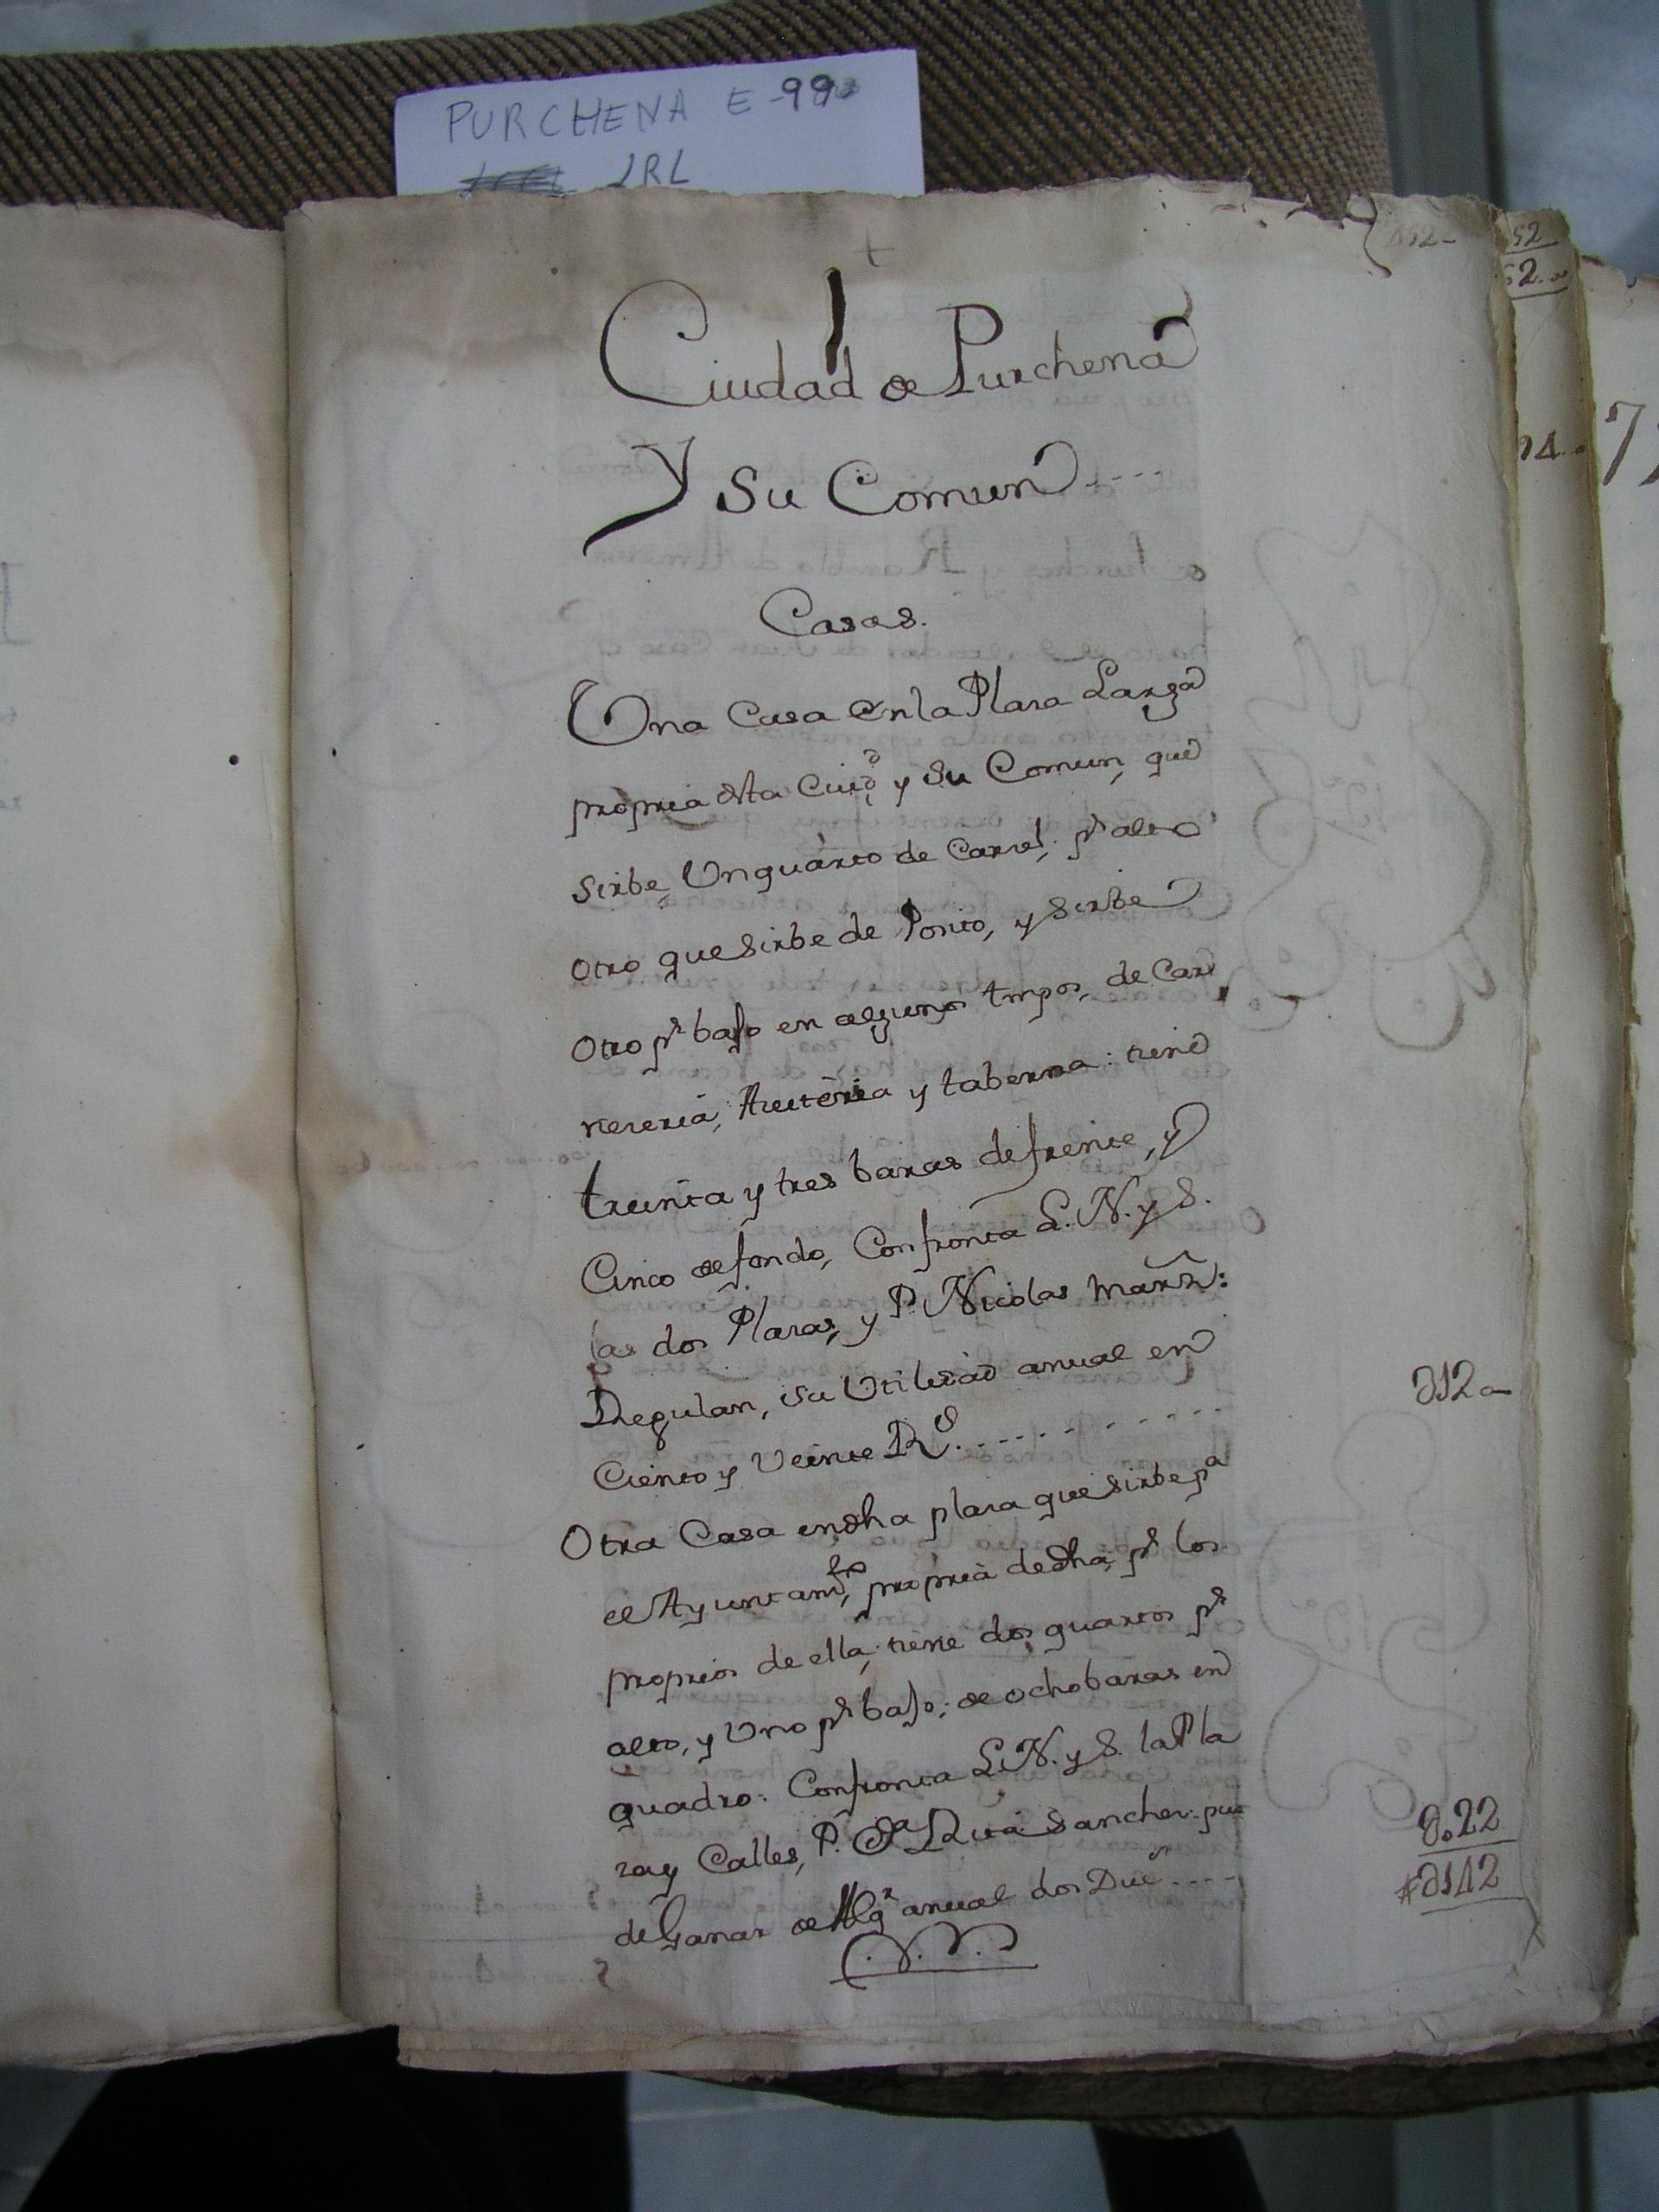 PURCHENA E-99
LRL
+
Ciudad de Purchena
Y Su Comun
Casas.
Una Casa en la Plaza Larga
propria desta Ciud.d y su Comun, que
sirbe Un quarto de Carzel, p.r alto
otro que sirbe de Posito, y sirbe
otro p.r bajo en algunos tmpos, de Car
nezeria, Azeiteria y taberna: tiene
treinta y tres baras de frente, y
Cinco de fondo, Confronta L. N. y S.
las dos Plazas, y P. Nicolas Marñz:
Regulan, su Utilidad anual en
Ciento y Veinte R.s
012 a
Otra Casa en dha plaza que sirbe p.a
el Ayuntam.to, propria de dha, p.r los
proprios de ella, tiene dos quartos p.r
alto, y Uno p.r bajo; de ocho baras en
quadro: Confronta L. N. y S. la Pla
za y Calles, P. D.a Sanchez pue
de Ganar de Alq.r anual dos Duc.s
0.22
#0142